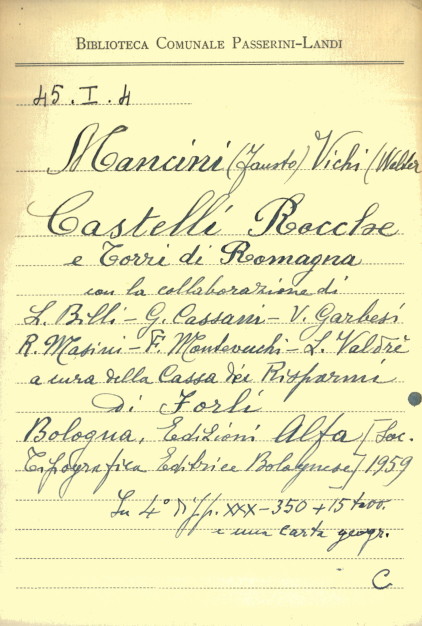 BIBLIOTECA COMUNALE PASSERINI-LANDI
45.I.4
Mancini (Fausto) Vichi (Walter
Castelli Rocche
e Torri di Romagna
con la collaborazione di
L. Billi - G. Cassani - V. Garbesi
R. Masini - F. Montevecchi - L. Valdrè
a cura della Cassa dei Risparmi
di Forlì
Bologna, Edizioni Alfa [Soc.
Tipografica Editrice Bolognese] 1959
In 4° pp. XXX-350 + 15 tavv.
e una carta geogr.
C